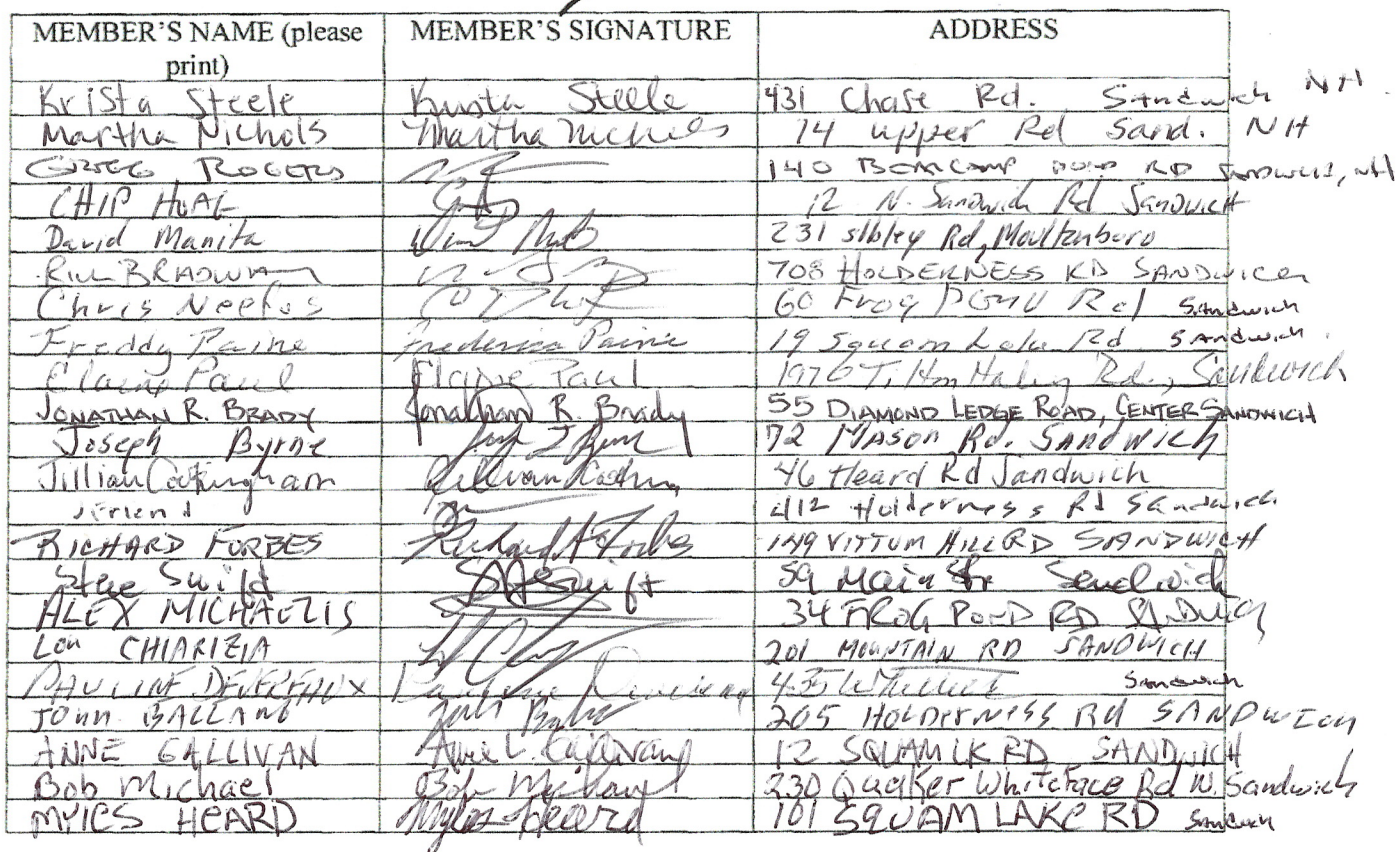 MEMBER'S NAME (please print) MEMBER'S SIGNATURE ADDRESS
Krista Steele Krista Steele 431 Chase Rd. Sandwich NH.
Martha Nichols Martha Nichols 14 upper Rd Sand. NH
GREG ROGERS 140 BEARCAMP POND RD SANDWICH, NH
CHIP 12 N. Sandwich Rd SANDWICH
David Manita 231 sibley Rd, Moultonboro
708 HOLDERNESS RD SANDWICH
Chris 60 Frog Pond Rd Sandwich
Freddy Paine Frederica Paine 19 Squam Lake Rd Sandwich
Elaine Paul Elaine Paul Rd., Sandwich
JONATHAN R. BRADY Jonathan R. Brady 55 DIAMOND LEDGE ROAD, CENTER SANDWICH
Joseph Byrne 72 MASON Rd. SANDWICH
Jillian 46 Heard Rd Sandwich
412 Holderness Rd Sandwich
RICHARD FORBES Richard A Forbes 149 VITTUM HILL RD SANDWICH
Swift 59 Main Str Sandwich
ALEX MICHAELIS 34 FROG POND RD SANDWICH
Lou CHIARIZIA 201 MOUNTAIN RD SANDWICH
PAULINE DEVEREAUX Pauline Sandwich
JOHN BALLARD 205 HOLDERNESS Rd SANDWICH
ANNE GALLIVAN Anne L. Gallivan 12 SQUAM LK RD SANDWICH
Bob Michael Bob Michael 230 Quaker Whiteface Rd W. Sandwich
MYLES HEARD Myles Heard 101 SQUAM LAKE RD Sandwich